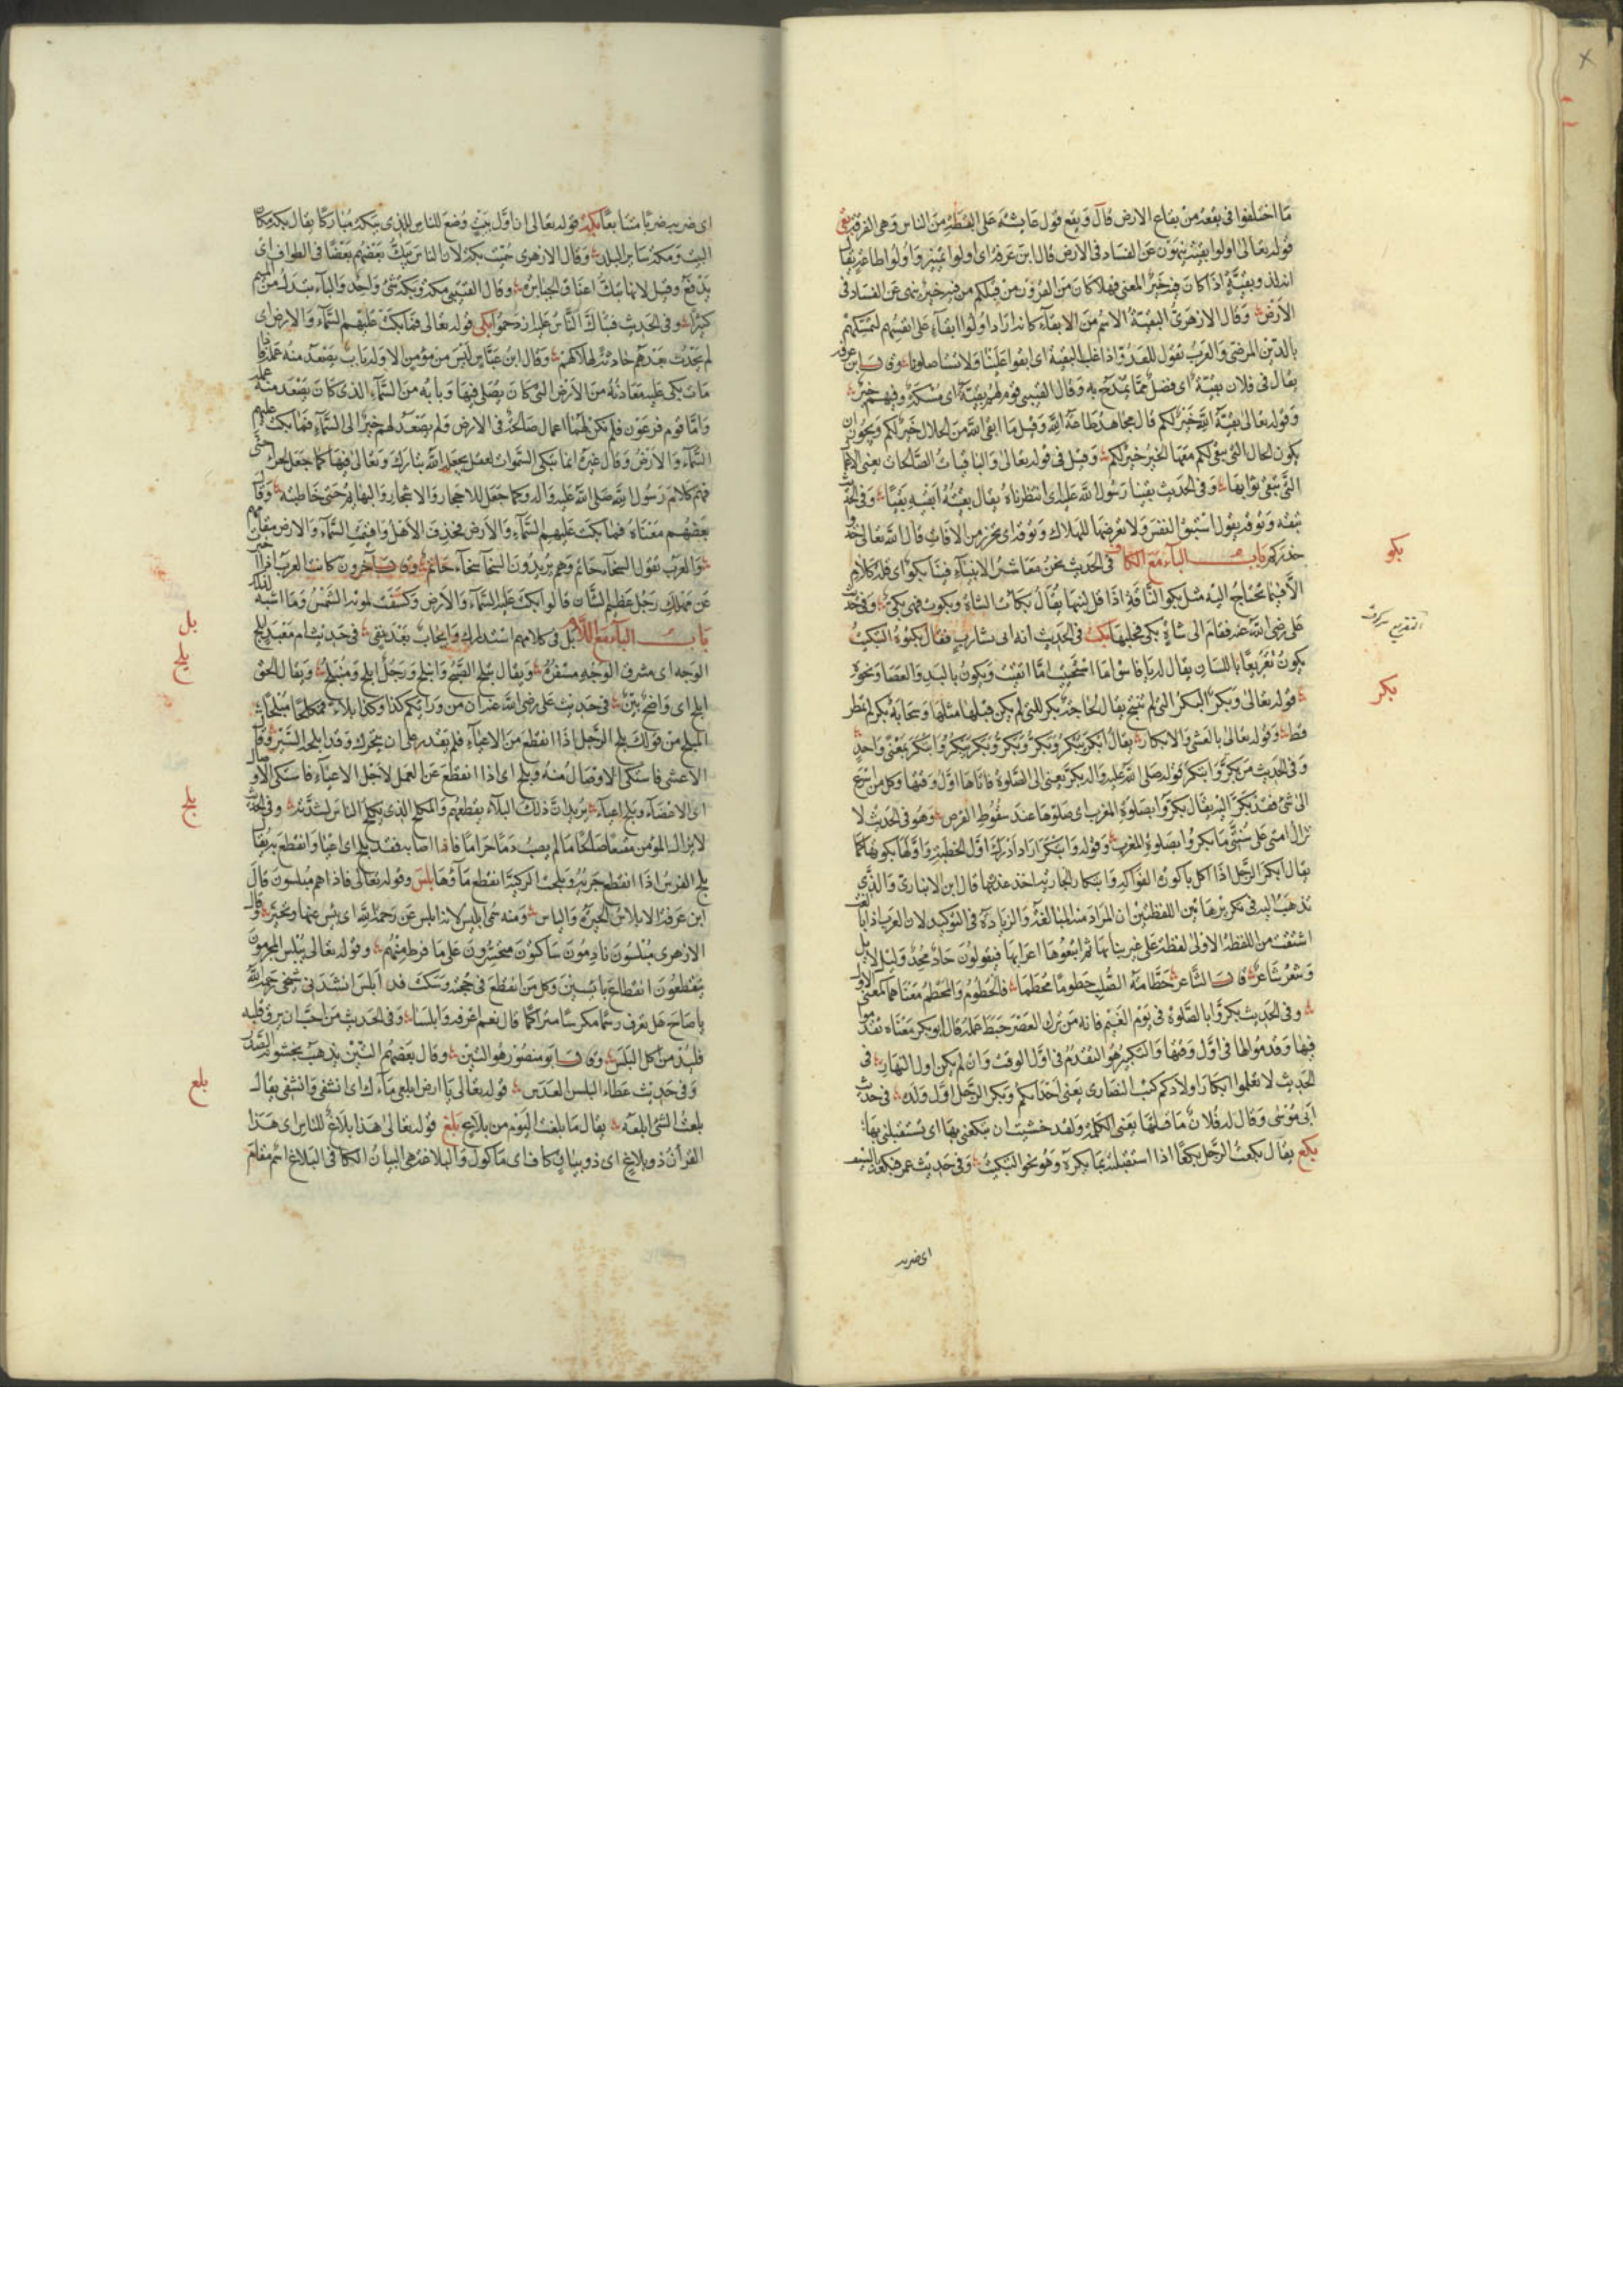 ما اختلفوا فى بقعة من بقاع الارض قال ويقع قول عائشة على البقطة من الناس وهى الفرقة بقى
قوله تعالى اولوا بقية ينهون عن الفساد فى الارض قال ابن عرفة اى اولوا تمييز واولوا طاعة يقال
انه لذو بقية اذا كان فيه خير المعنى فهلا كان من القرون من قبلكم من فيه خير ينهى عن الفساد فى
الارض وقال الازهرى البقية الاسم من الابقاء كانه اراد اولوا ابقاء على انفسهم لتمسكهم
بالدين المرضى والعرب تقول للعدو اذا غلب البقية اى ابقوا علينا ولا تستاصلونا وقال ابن عرفة
يقال فى فلان بقية اى فضل مما يمدح به وقال القتيبى قوم لهم بقية اى مسكة وفيهم خير
وقوله تعالى بقية الله خير لكم قال مجاهد طاعة الله وقيل ما ابقى الله من الحلال خير لكم ويجوز ان
يكون الحال التى تبقى لكم معها الخير خير لكم وقيل فى قوله تعالى والباقيات الصالحات يعنى الاعمال
التى يبقى ثوابها وفى الحديث بقينا رسول الله عليه اى انتظرناه يقال بقيته ابقيه بقيا وفى الحديث
تبقه وتوقه يقول استبق النفس ولا تعرضها للهلاك وتوق اى تحرز من الافات قال الله تعالى خذوا
حذركم باب الباء مع الكاف فى الحديث نحن معاشر الانبياء فينا بكو اى قلة كلام
الا فيما يحتاج اليه مثل بكو الناقة اذا قل لبنها يقال بكات الشاة وبكوت فهى بكى وفى حديث
على رضى الله عنه فقام الى شاة بكى فحلبها بكت فى الحديث انه اتى بشارب فقال بكتوه التبكيت
يكون تقريعا باللسان يقال له يا فاسق اما استحييت اما اتقيت ويكون باليد والعصا ونحوه
قوله تعالى وبكر البكر التى لم تنتج يقال حاجة بكر للتى لم يكن قبلها مثلها وسحابة بكر لم تمطر
قط وقوله تعالى بالعشى والابكار يقال ابكر يبكر وبكر وبكر يبكر وابتكر بمعنى واحد
وفى الحديث من بكر وابتكر قوله صلى الله عليه واله بكر يعنى الى الصلوة فاتاها اول وقتها وكل من اسرع
الى شئ فقد بكر اليه يقال بكروا بصلوة المغرب اى صلوها عند سقوط القرص وهو فى الحديث لا
تزال امتى على سنتى ما بكروا بصلوة المغرب وقوله وابتكر اراد ادرك اول الخطبة واولها بكورتها كما
يقال ابتكر الرجل اذا اكل باكورة الفواكه وابتكار الجارية اخذ عذرتها قال ابن الانبارى والذى
نذهب اليه فى تكريرها بين اللفظتين ان المراد منه المبالغة والزيادة فى التوكيد لان العرب اذا بالغت
اشتقت من اللفظة الاولى لفظة على غير بنائها ثم اتبعوها اعرابها فيقولون جاد مجد وليل لايل
وشعر شاعر قال الشاعر حطامة الصلب حطوما محطما فالحطوم والمحطم معناهما كمعنى الاول
وفى الحديث بكروا بالصلوة فى يوم الغيم فانه من ترك العصر حبط عمله قال ابو بكر معناه تقدموا
فيها وقدموا لها فى اول وقتها والتبكير هو التقدم فى اول الوقت وان لم يكن اول النهار فى
الحديث لا تعلموا ابكار اولادكم كتب النصارى يعنى احداثكم وبكر الرجل اول ولده فى حديث
ابى موسى وقال له فلان ما قلتها يعنى الكلمة ولقد خشيت ان تبكعنى بها اى تستقبلنى بها
بكع يقال بكعت الرجل بكعا اذا استقبلته بما يكره وهو نحو التبكيت وفى حديث عمر فبكعه بالسيف
بكو
بكر
اى ضربه
اى ضربه ضربا متتابعا بكه قوله تعالى ان اول بيت وضع للناس للذى ببكة مباركا يقال بكة مكان
البيت ومكة سائر البلد وقال الازهرى سميت بكة لان الناس يبك بعضهم بعضا فى الطواف اى
يدفع وقيل لانها تبك اعناق الجبابرة وقال القتيبى مكة وبكة شئ واحد والباء تبدل من الميم
كثيرا وفى الحديث فتباك الناس عليه ازدحموا بكى قوله تعالى فما بكت عليهم السماء والارض اى
لم يحدث بعدهم حادثة لهلاكهم وقال ابن عباس ليس من مؤمن الا وله باب يصعد منه عمله فاذا
مات بكى عليه معادنه من الارض التى كان يصلى فيها وبابه من السماء الذى كان يصعد منه عمله
واما قوم فرعون فلم يكن لهم اعمال صالحة فى الارض ولم يصعد لهم خير الى السماء فما بكت عليهم
السماء والارض وقال غيره انما تبكى السموات بعمل يجعله الله تبارك وتعالى فيها كما جعل للحجر حتى
فهم كلام رسول الله صلى الله عليه واله وكما جعل للاحجار والاشجار والبهائم حتى خاطبته وقال
بعضهم معناه فما بكت عليهم اهل السماء والارض فحذف الاهل واقيمت السماء والارض مقامهم
والعرب تقول السخاء حاتم وهم يريدون السخا سخاء حاتم وقال آخرون كانت العرب اذا اخبرت
عن مهلك رجل عظيم الشان قالوا بكت عليه السماء والارض وكسفت لموته الشمس وما اشبه ذلك
باب الباء مع اللام بل فى كلامهم استدراك وايجاب بعد نفى فى حديث ام معبد ابلج
الوجه اى مشرق الوجه مسفره ويقال تبلج الصبح وانبلج ورجل ابلج ومنبلج ويقال الحق
ابلج اى واضح بين فى حديث على رضى الله عنه ان من ورائكم كذا وكذا بلاء مكلحا مبلحا
المبلح من قولك بلح الرجل اذا انقطع من الاعياء فلم يقدر على ان يتحرك وقد ابلحه السير وقال
الاعشى فاشتكى الاوصال منه وبلح اى اذا انقطع عن العمل لاجل الاعياء فاشتكى الاوصال
اى الاعضاء وبلح اعياء يريد ان ذلك البلاء يقطعهم والمكلح الذى يكلح الناس لشدته وفى الحديث
لا يزال المؤمن معنقا صالحا ما لم يصب دما حراما فاذا اصابه فقد بلح اى اعيا وانقطع به يقال
بلح الفرس اذا انقطع جريه وبلحت الركية انقطع ماؤها بلس وقوله تعالى فاذا هم مبلسون قال
ابن عرفة الابلاس الحيرة والياس ومنه سمى ابليس لانه ابلس عن رحمة الله اى يئس عنها وتحير وقال
الازهرى مبلسون نادمون ساكتون متحسرون على ما فرط منهم وقوله تعالى يبلس المجرمون
ينقطعون انقطاع يائسين وكل من انقطع فى حجته وسكت فقد ابلس انشدنى شيخى رحمه الله
يا صاح هل تعرف رسما مكرسا قال نعم اعرفه وابلسا وفى الحديث من احب ان يرق قلبه
فليدمن اكل البلس وقال ابو منصور هو التين وقال بعضهم التين يذهب بحشو المعدة
وفى حديث عطاء البلسن العدس قوله تعالى يا ارض ابلعى ماءك اى انشفى وانشفى يقال
بلعت الشئ ابلعه يقال ما بلغت اليوم من بلاغ بلغ قوله تعالى هذا بلاغ للناس اى هذا
القرآن ذو بلاغ اى ذو بيان كاف اى ماكول والبلاغة هى البيان الكافى البلاغ اسم مقام
بل
بلج
بلح
بلع